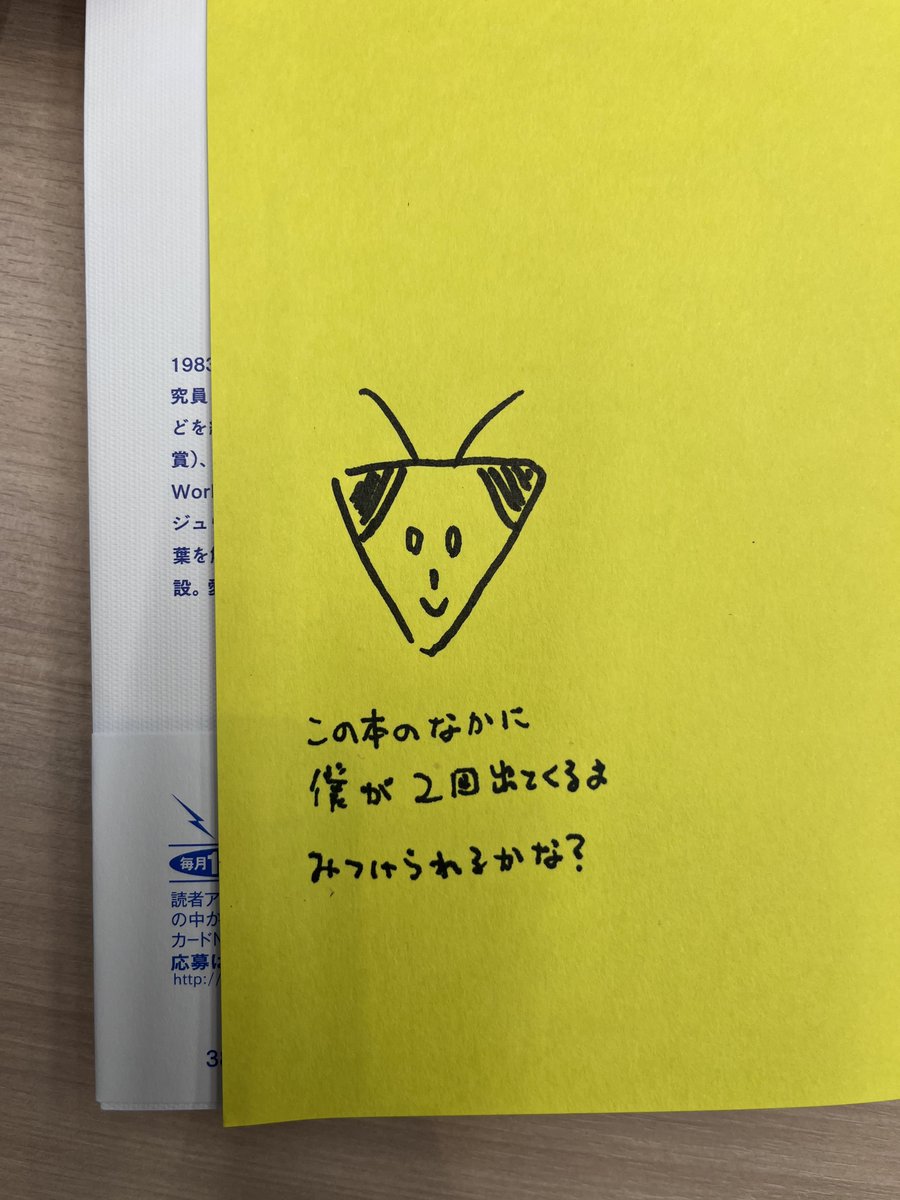 1983
究員
どを
賞)、
Worl
ジュ
葉を
設。
毎月1
読者ア
の中か
カードN
応募は
http://
3
この本のなかに
僕が2回出てくるよ
みつけられるかな?